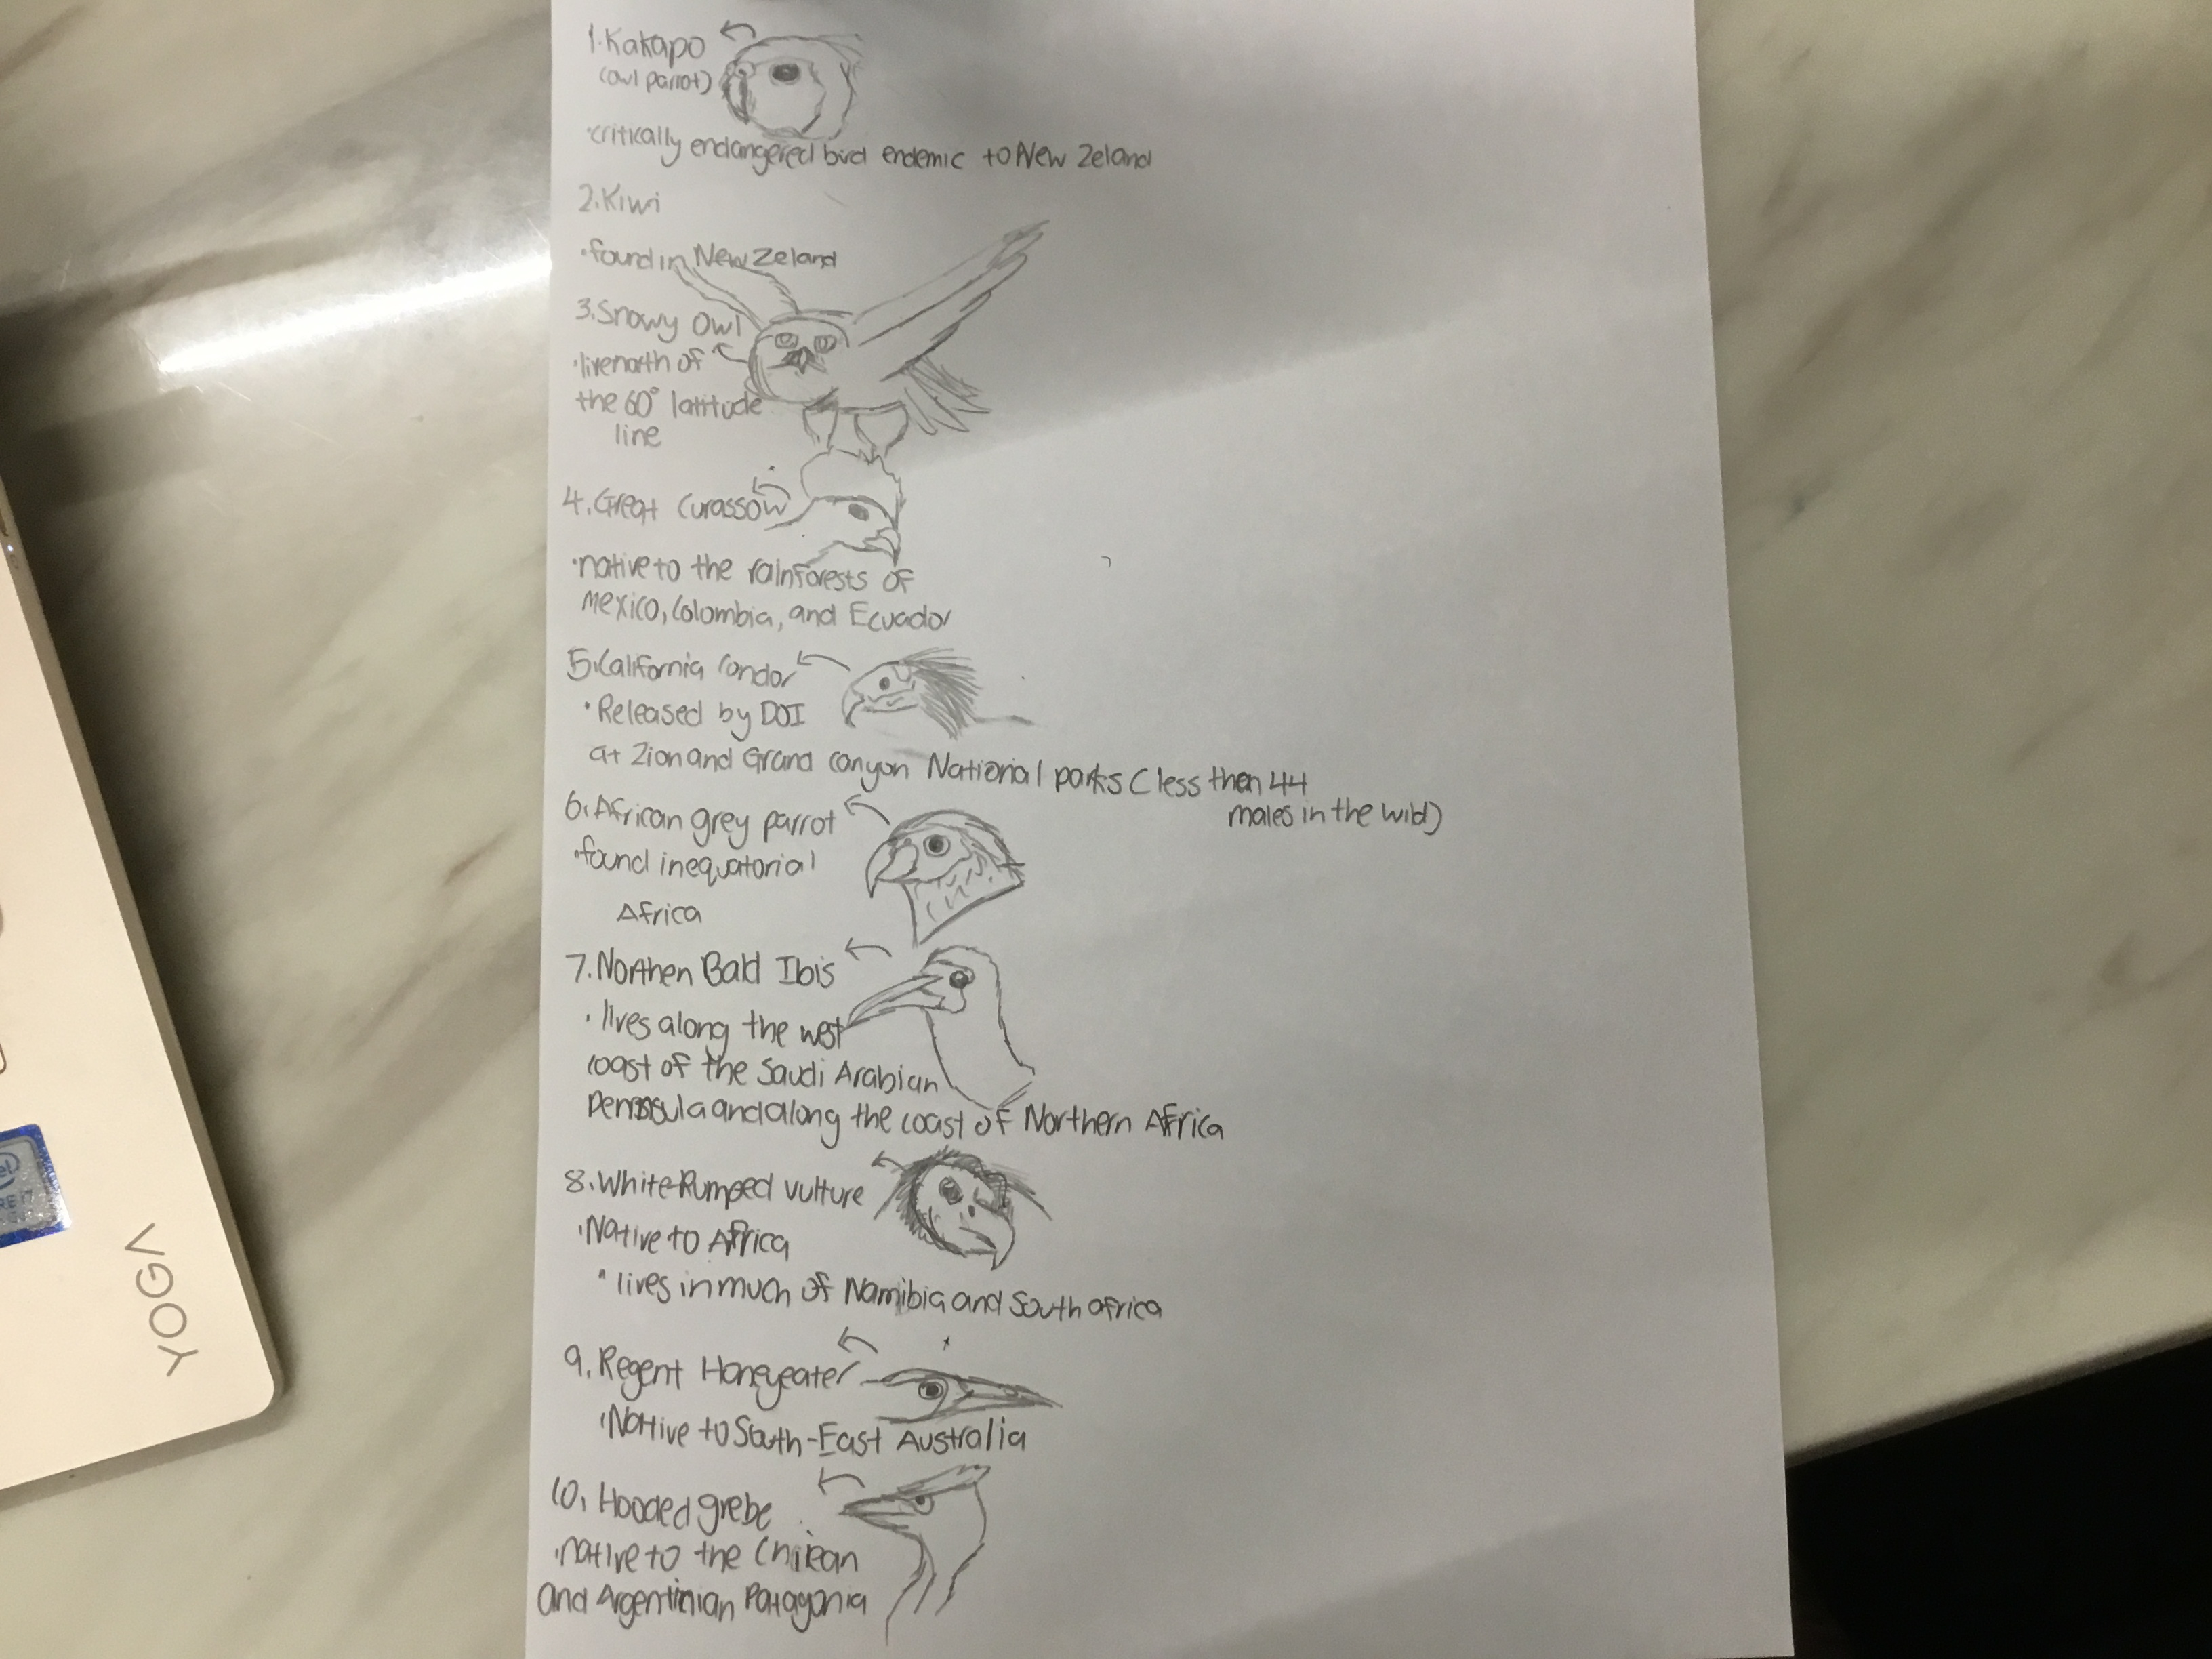 1. Kakapo
(owl parrot)
·critically endangered bird endemic to New Zeland
2. Kiwi
·found in New Zeland
3. Snowy Owl
·live north of
the 60° latitude
line
4. Great Curassow
·native to the rainforests of
Mexico, Colombia, and Ecuador
5. California Condor
· Released by DOI
at Zion and Grand Canyon National parks (less then 44
males in the wild)
6. African grey parrot
·found in equatorial
Africa
7. Northen Bald Ibis
· lives along the west
coast of the Saudi Arabian
Peninsula and along the coast of Northern Africa
8. White-Rumped vulture
·Native to Africa
· lives in much of Namibia and South africa
9. Regent Honeyeater
·Native to South-East Australia
10. Hooded grebe
·native to the Chilean
and Argentinian Patagonia
YOGA